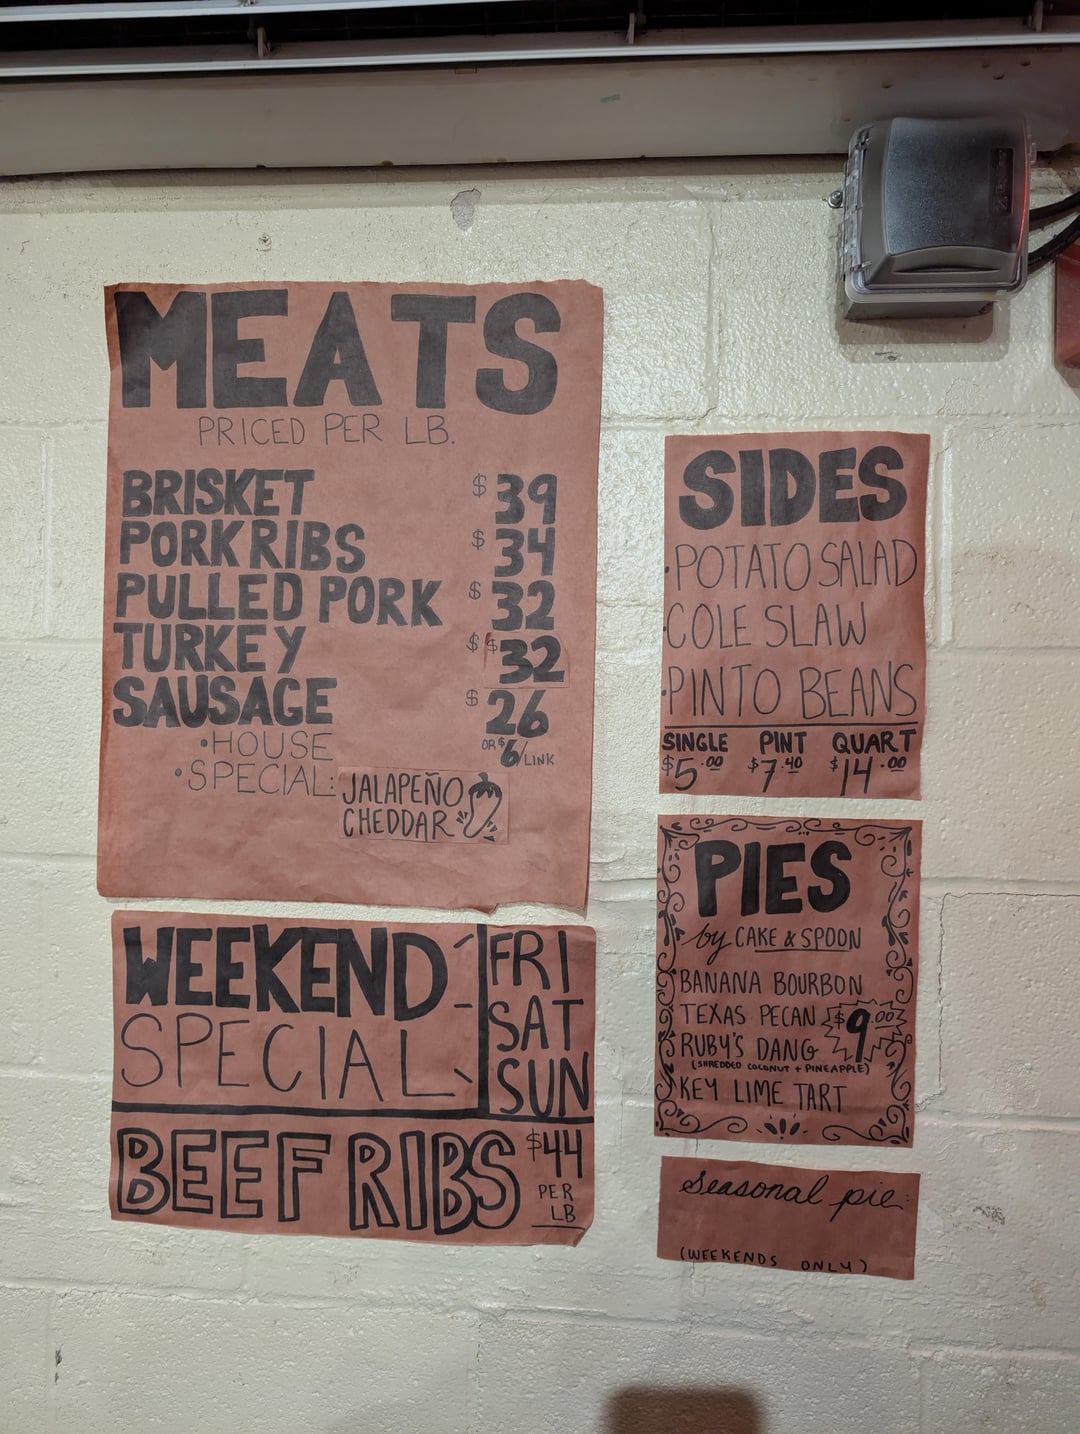 MEATS
PRICED PER LB.
BRISKET $39
PORK RIBS $34
PULLED PORK $32
TURKEY $ $32
SAUSAGE $26
OR $6/LINK
•HOUSE
•SPECIAL: JALAPEÑO
CHEDDAR
WEEKEND
SPECIAL
FRI
SAT
SUN
BEEF RIBS $44
PER
LB
SIDES
•POTATO SALAD
•COLE SLAW
•PINTO BEANS
SINGLE PINT QUART
$5.00 $7.40 $14.00
PIES
by CAKE & SPOON
BANANA BOURBON
TEXAS PECAN $9.00
RUBY'S DANG
(SHREDDED COCONUT + PINEAPPLE)
KEY LIME TART
Seasonal pie:
(WEEKENDS ONLY)